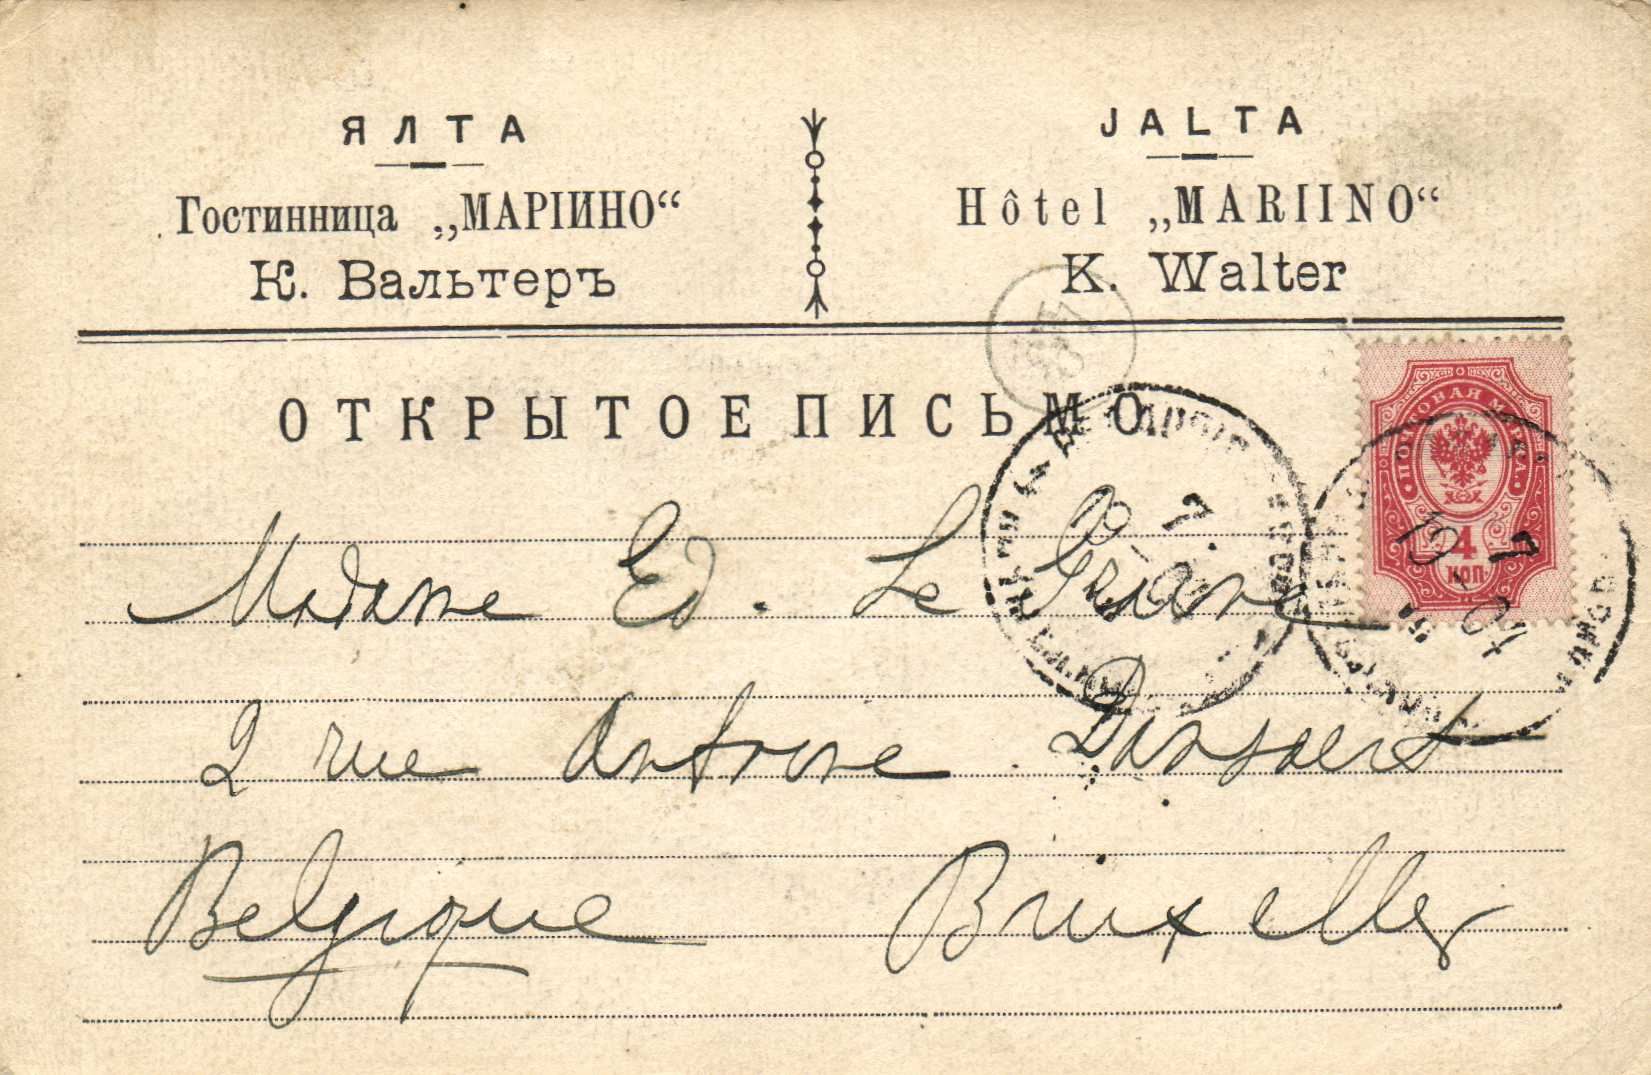 ЯЛТА
Гостинница „МАРІИНО“
К. Вальтеръ
JALTA
Hôtel „MARIINO“
K. Walter
ОТКРЫТОЕ ПИСЬМО
ПОЧТОВАЯ МАРКА
4
КОП.
7
19 7 04
Madame Ed. Le
2 rue Antoine Dansaert
Belgique Bruxelles